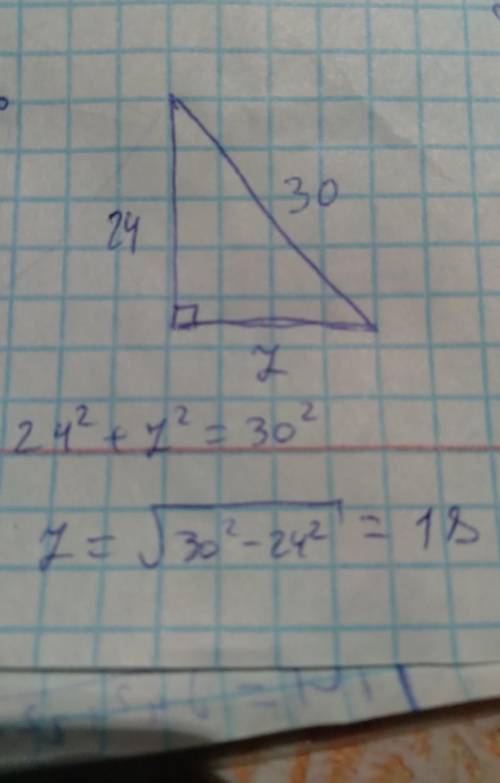 30
24
z
24² + z² = 30²
z = √30² - 24² = 18